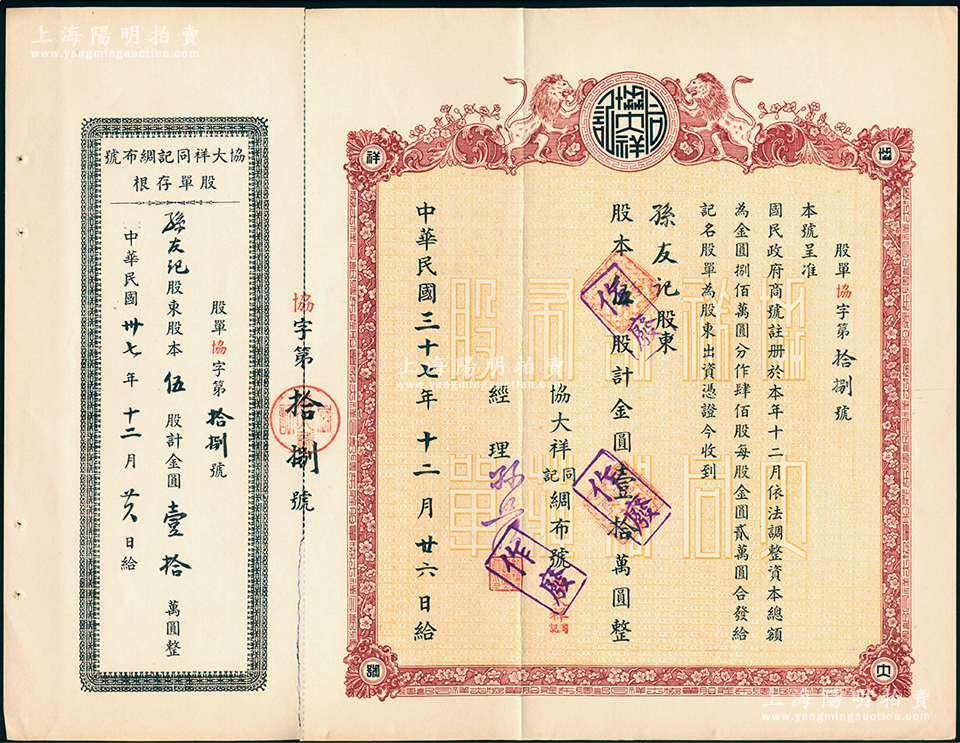 上海陽明拍賣
www.yangmingauction.com
協大祥
同記
協
大
祥
號
股單協字第拾捌號
本號呈准
國民政府商號註册於本年十二月依法調整資本總額
為金圓捌佰萬圓分作肆佰股每股金圓貳萬圓合發給
記名股單為股東出資憑證今收到
孫友記股東
股本伍股計金圓壹拾萬圓整
協大祥同記綢布號
經理
中華民國三十七年十二月廿六日給
作廢
作廢
作廢
協字第拾捌號
協大祥同記綢布號
股單存根
股單協字第拾捌號
孫友記股東股本伍股計金圓壹拾萬圓整
中華民國卅七年十二月廿六日給
上海陽明拍賣
www.yangmingauction.com
上海陽明拍賣
www.yangmingauction.com